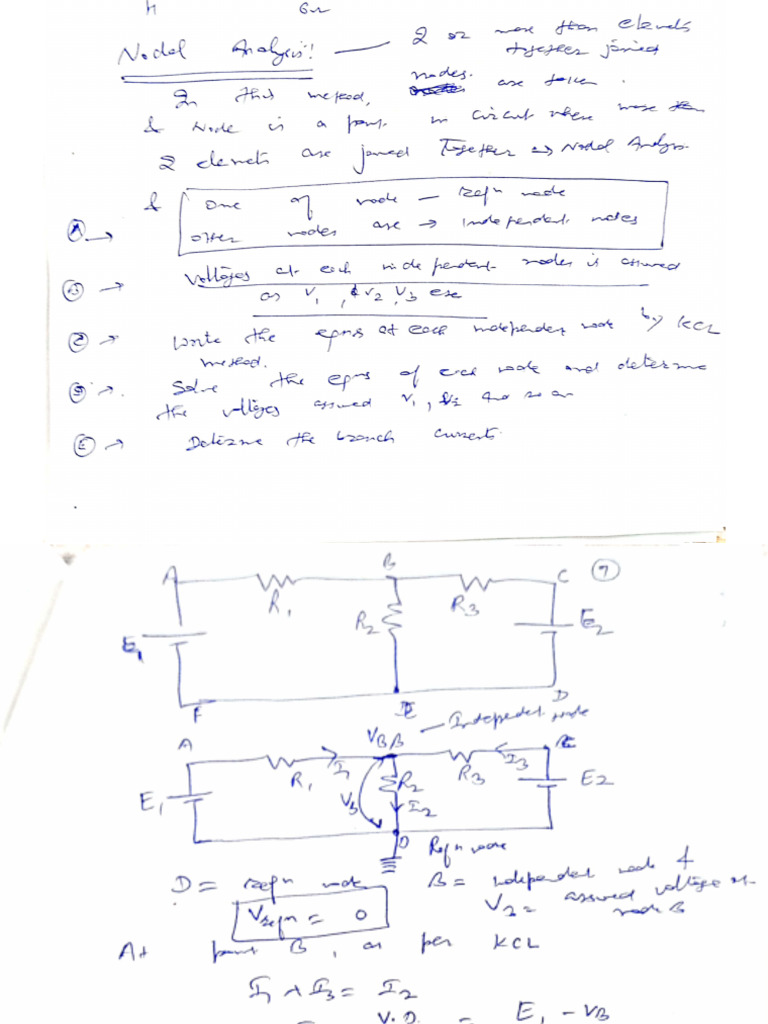 Nodal Analysis! — 2 or more than elements
together joined
In this method, nodes. are taken.
& Node is a point in circuit where more than
2 elements are joined Together => Nodal Analysis.
& One of node — Refn node
(A) → other nodes are → independent nodes
(B) → Voltages at each independent nodes is assumed
as V1, & V2, V3 etc
(C) → Write the eqns at each independent node by KCL
method.
(D) → Solve the eqns of each node and determine
the voltages assumed V1, V2 and so on
(E) → Determine the branch currents.
A B C (7)
R1 R2 R3
E1 E2
F E D
A VB B — Independent node
R1 I1 R2 R3 I3
E1 VB I2 E2
D Refn node
D = Refn node B = independent node &
Vrefn = 0 VB = assumed voltage at
node B
At point B, as per KCL
I1 + I3 = I2
V.D = E1 - VB